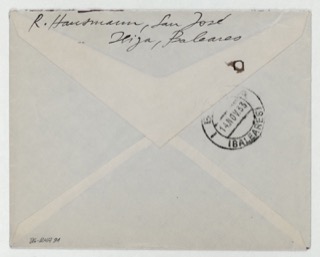 R. Hausmann, San José
Ibiza, Baleares
14 NOV 33
(BALEARES)